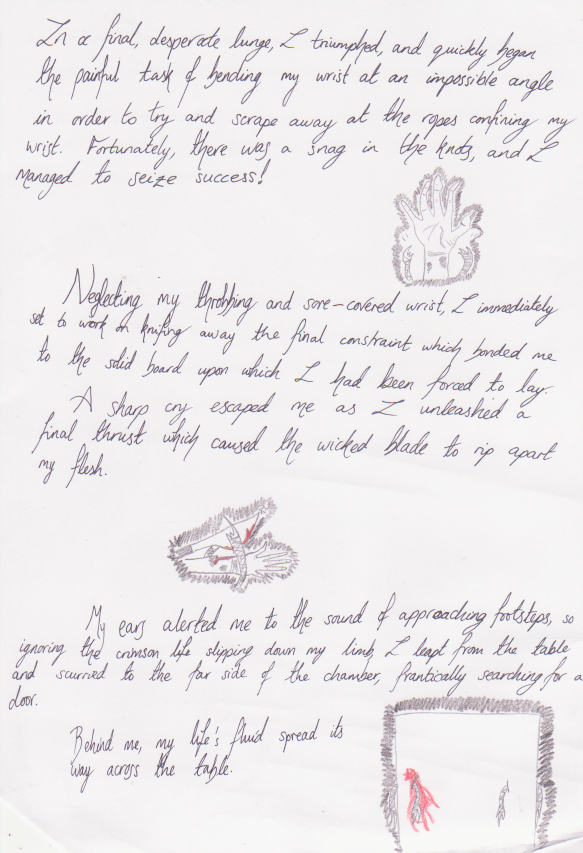 In a final, desperate lunge, I triumphed, and quickly began
the painful task of bending my wrist at an impossible angle
in order to try and scrape away at the ropes confining my
wrist. Fortunately, there was a snag in the knots, and I
managed to seize success!
Neglecting my throbbing and sore-covered wrist, I immediately
set to work on knifing away the final constraint which bonded me
to the solid board upon which I had been forced to lay.
A sharp cry escaped me as I unleashed a
final thrust which caused the wicked blade to rip apart
my flesh.
My ears alerted me to the sound of approaching footsteps, so
ignoring the crimson life slipping down my limb, I leapt from the table
and scurried to the far side of the chamber, frantically searching for a
door.
Behind me, my life's fluid spread its
way across the table.